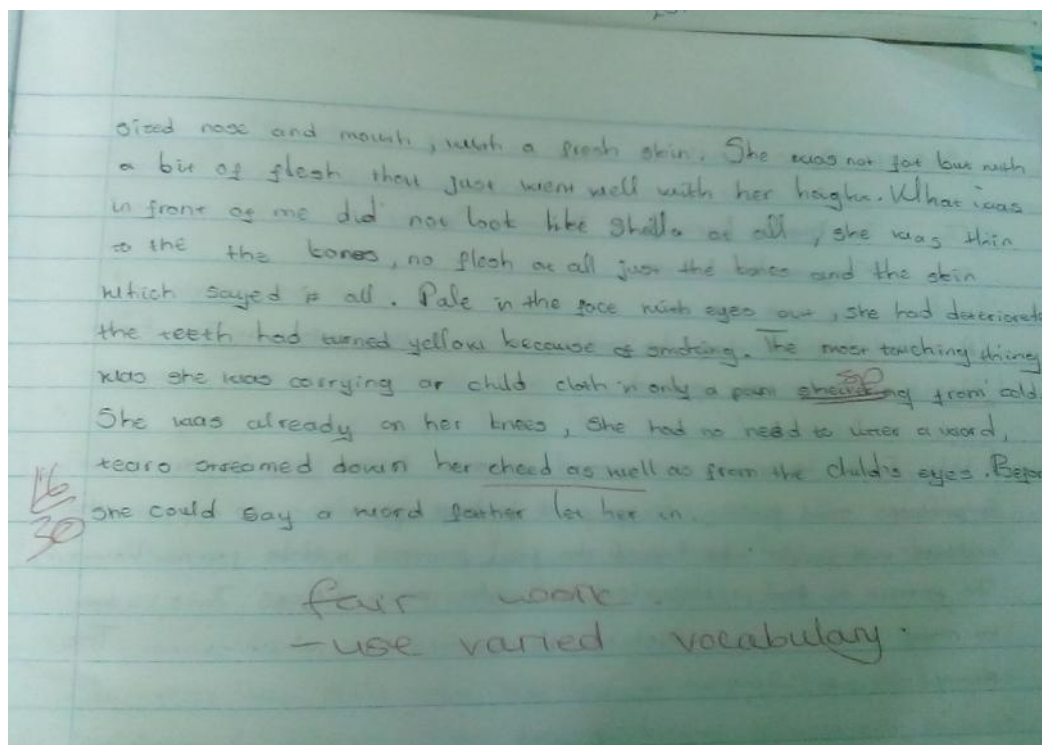 sized nose and mouth, with a fresh skin. She was not fat but with
a bit of flesh that just went well with her height. What was
in front of me did not look like Sheilla at all, she was thin
to the the bones, no flesh at all just the bones and the skin
which sayed it all. Pale in the face with eyes out, she had deteriorate
the teeth had turned yellow because of smoking. The most touching thing
was she was carrying a child cloth n only a from cold
She was already on her knees, she had no need to utter a word,
tears streamed down her cheed as well as from the child's eyes. Befor
she could say a word father let her in.
16
30
fair work.
- use varied vocabulary.